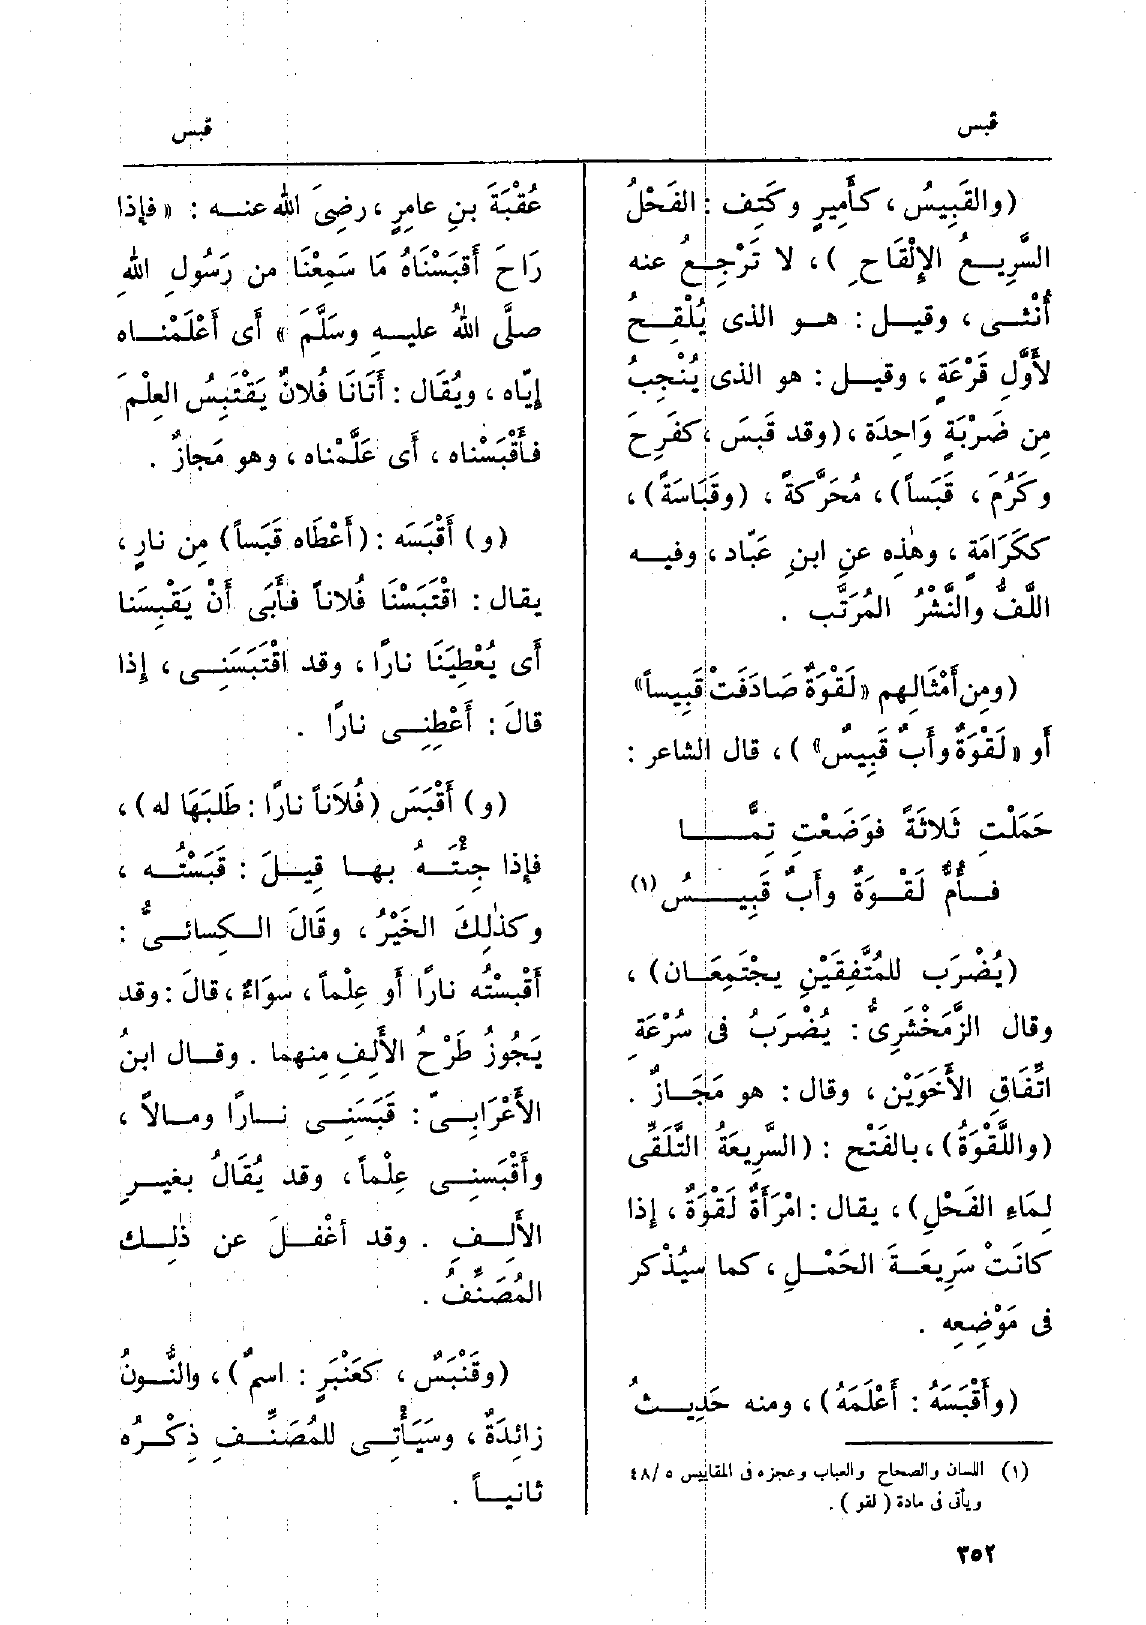 قبس
قبس
(والقَبِيسُ ، كأَمِيرٍ وكَتِف : الفَحْلُ
السَّرِيعُ الإِلْقَاحِ ) ، لا تَرْجِعُ عنه
أُنْثى ، وقيل : هو الذى يُلْقِحُ
لأَوَّلِ قَرْعَةٍ ، وقيل : هو الذى يُنْجِبُ
مِن ضَرْبَةٍ وَاحِدَة ، (وقد قَبَسَ ، كفَرِحَ
وكَرُمَ ، قَبَساً) ، مُحَرَّكةً ، (وقَبَاسَةً) ،
ككَرَامَةٍ ، وهٰذه عنِ ابنِ عَبّاد ، وفيه
اللَّفُّ والنَّشْرُ المُرَتَّب .
(ومِن أَمْثَالِهم « لَقْوَةٌ صَادَفَتْ قَبِيساً »
أَو « لَقْوَةٌ وأَبٌ قَبِيسٌ » ) ، قال الشاعر :
حَمَلْتِ ثَلاثَةً فوَضَعْتِ تِمًّا
فأُمٌّ لَقْوَةٌ وأَبٌ قَبِيسُ (١)
(يُضْرَب للمُتَّفِقَيْنِ يجْتَمِعَان) ،
وقال الزَّمَخْشَرِىُّ : يُضْرَبُ فى سُرْعَةِ
اتِّفَاقِ الأَخَوَيْنِ ، وقال : هو مَجَازٌ .
(واللَّقْوَةُ) ، بالفَتْح : (السَّرِيعَةُ التَّلَقِّى
لِمَاءِ الفَحْلِ) ، يقال : امْرَأَةٌ لَقْوَةٌ ، إذا
كانَتْ سَرِيعَةَ الحَمْلِ ، كما سيُذْكر
فى مَوْضِعِه .
(وأَقْبَسَهُ : أَعْلَمَهُ) ، ومنه حَدِيثُ
(١) اللسان والصحاح والعباب وعجزه فى المقاييس ٥/ ٤٨
ويأتى فى مادة ( لقو ) .
عُقْبَةَ بنِ عامِرٍ ، رضِىَ اللهُ عنه : « فإِذا
رَاحَ أَقْبَسْنَاهُ مَا سَمِعْنَا من رَسُولِ اللهِ
صلَّى اللهُ عليهِ وسَلَّمَ » أَى أَعْلَمْناه
إِيّاه ، ويُقَال : أَتَانَا فُلانٌ يَقْتَبِسُ العِلْمَ
فأَقْبَسْناه ، أَى عَلَّمْناه ، وهو مَجازٌ .
(و) أَقْبَسَه : (أَعْطَاه قَبَساً) مِن نارٍ ،
يقال : اقْتَبَسْنَا فُلاناً فأَبَى أَنْ يَقْبِسَنا
أَى يُعْطِيَنَا نارًا ، وقد اقْتَبَسَنِى ، إِذا
قالَ : أَعْطِنِى نارًا .
(و) أَقْبَسَ (فُلَاناً نارًا : طَلَبَهَا له) ،
فإِذا جِئْتَهُ بها قِيلَ : قَبَسْتُه ،
وكذٰلِكَ الخَيْرُ ، وقَالَ الكِسائىُّ :
أَقْبَسْتُه نارًا أَو عِلْماً ، سوَاءٌ ، قالَ : وقد
يَجُوزُ طَرْحُ الأَلِفِ منهما . وقال ابنُ
الأَعْرَابِىّ : قَبَسَنِى نارًا ومالاً ،
وأَقْبَسنِى عِلْماً ، وقد يُقَالُ بغيرِ
الأَلِفِ . وقد أَغْفلَ عن ذٰلِك
المُصَنِّفُ .
(وقَنْبَسٌ ، كعَنْبَرٍ : اسمٌ ) ، والنُّونُ
زائِدَةٌ ، وسَيَأْتِى للمُصَنِّفِ ذِكْرُه
ثانياً .
٣٥٢